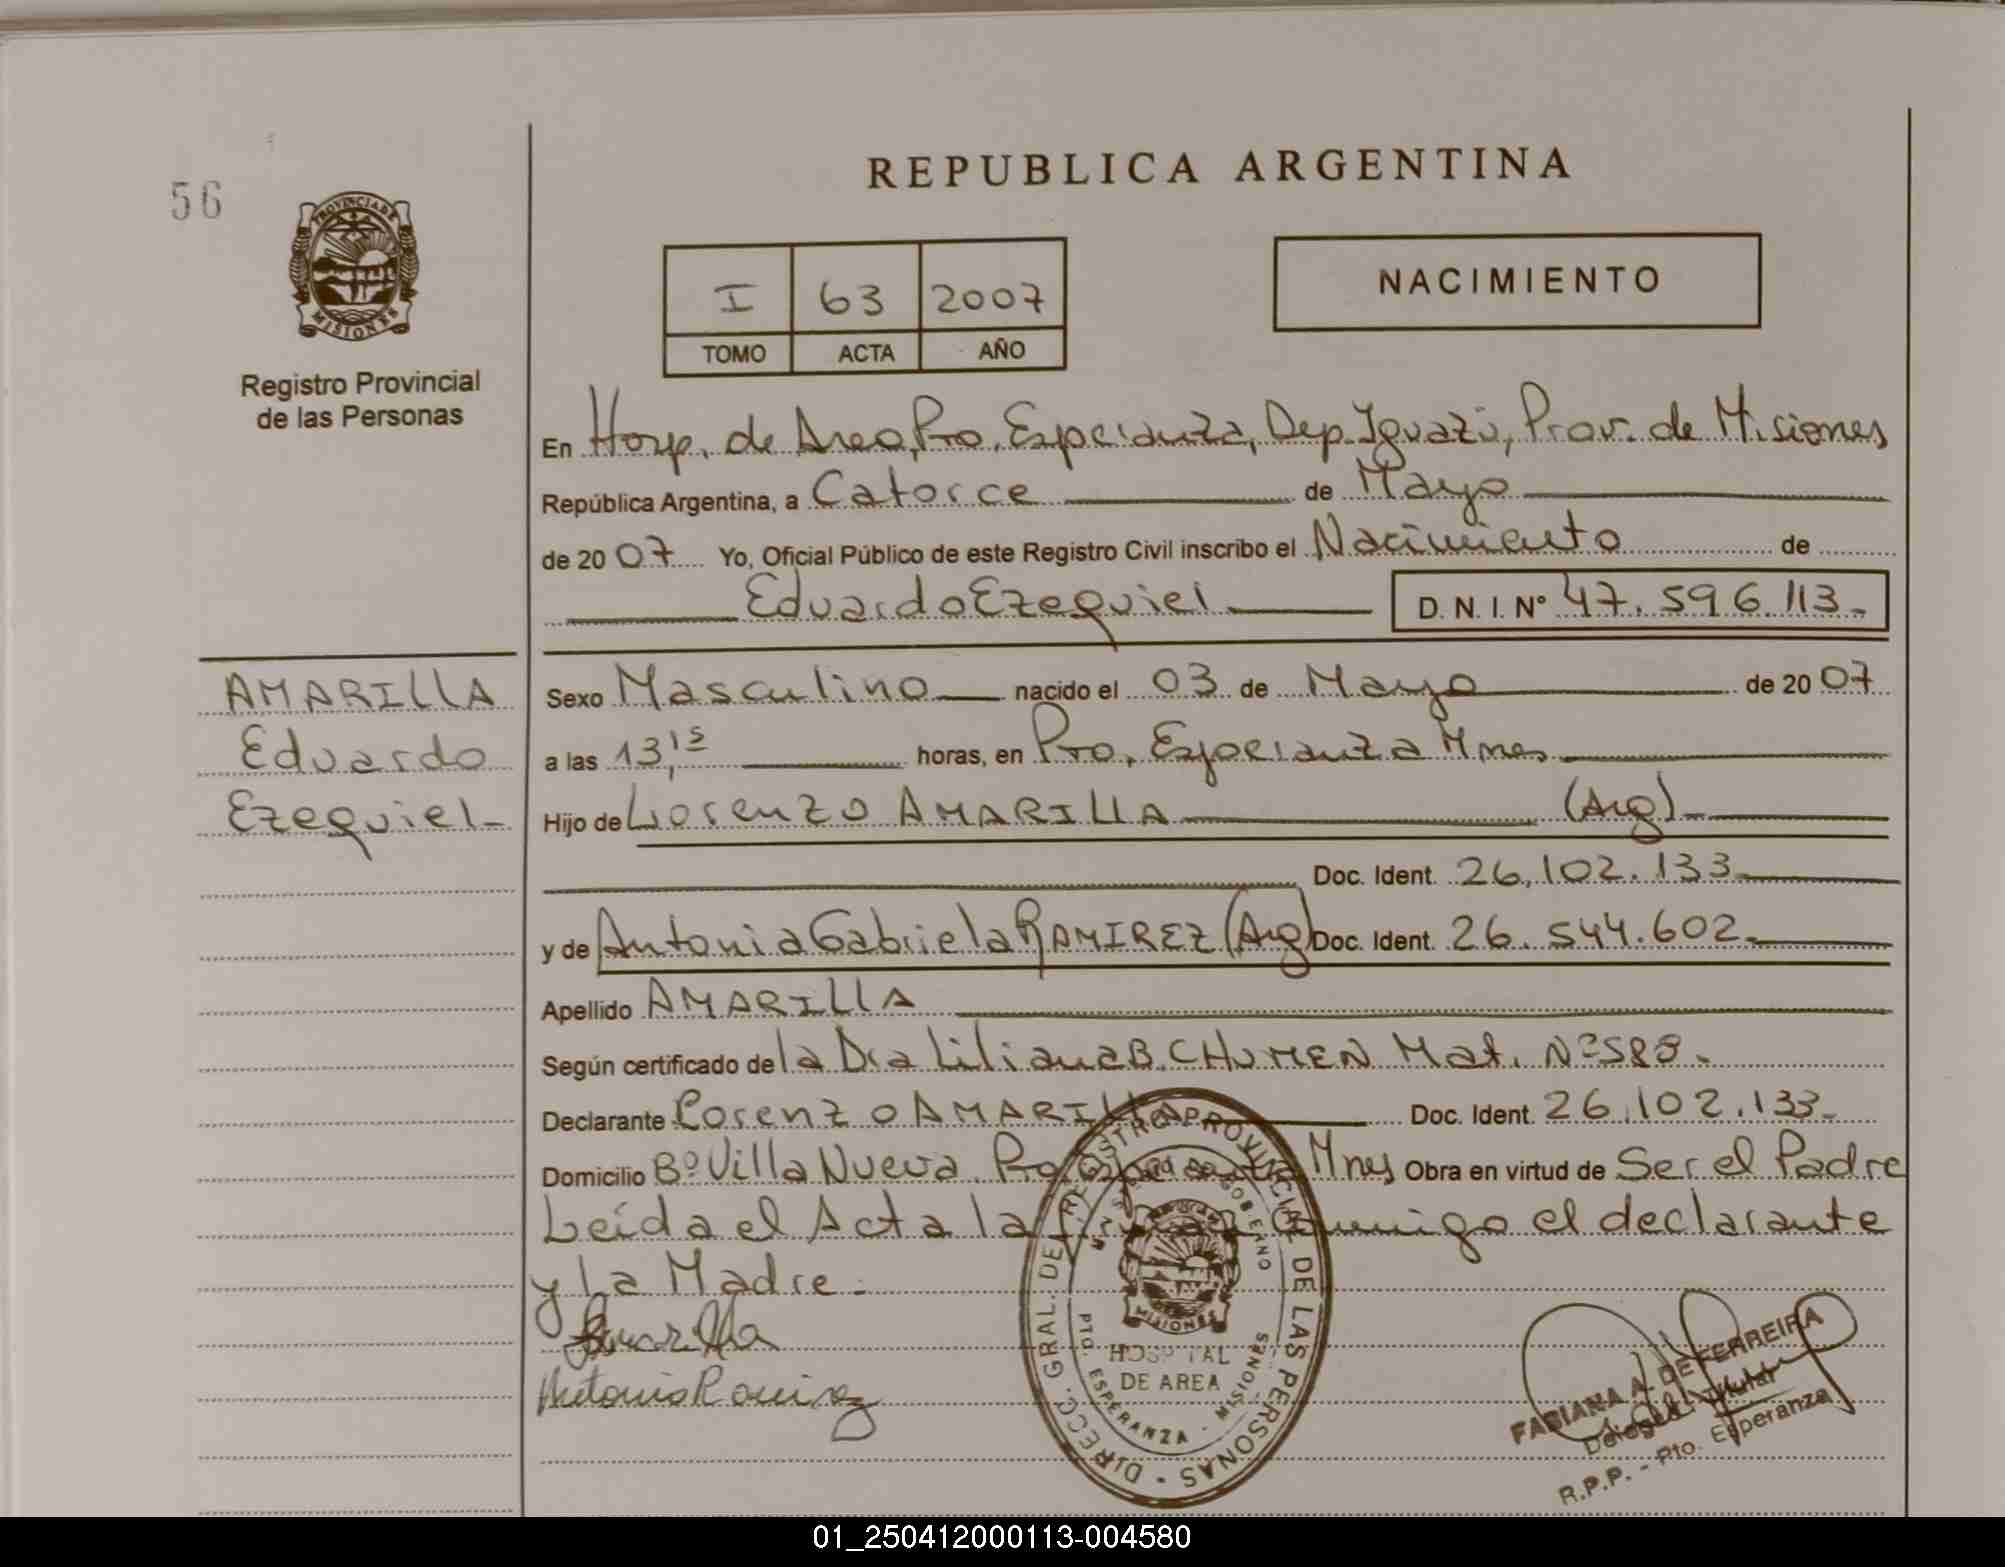 56
PROVINCIA DE
MISIONES
Registro Provincial
de las Personas
REPUBLICA ARGENTINA
I 63 2007
TOMO ACTA AÑO
NACIMIENTO
En Hosp. de Area, Pto. Esperanza, Dep. Iguazú, Prov. de Misiones
República Argentina, a Catorce de Mayo
de 2007 Yo, Oficial Público de este Registro Civil inscribo el Nacimiento de
Eduardo Ezequiel D. N. I. Nº 47.596.113.-
AMARILLA
Eduardo
Ezequiel-
Sexo Masculino nacido el 03 de Mayo de 2007
a las 13,15 horas, en Pto. Esperanza Mnes
Hijo de Lorenzo AMARILLA (Arg)
Doc. Ident. 26.102.133
y de Antonia Gabriela RAMIREZ (Arg) Doc. Ident. 26.544.602
Apellido AMARILLA
Según certificado de la Dra Liliana B. CHUMEN Mat. Nº 588.
Declarante Lorenzo AMARILLA Doc. Ident. 26.102.133-
Domicilio Bº Villa Nueva Pto. Esperanza Mnes Obra en virtud de Ser el Padre
Leída el Acta la firman Conmigo el declarante
y La Madre.
Amarilla
Antonia Ramirez
DIRECC. GRAL. DE REGISTRO PROVINCIAL DE LAS PERSONAS
MISIONES
HOSPITAL
DE AREA
PTO. ESPERANZA - MISIONES
FABIANA A. DE FERREIRA
Delegada Titular
R.P.P. - Pto. Esperanza
01_250412000113-004580